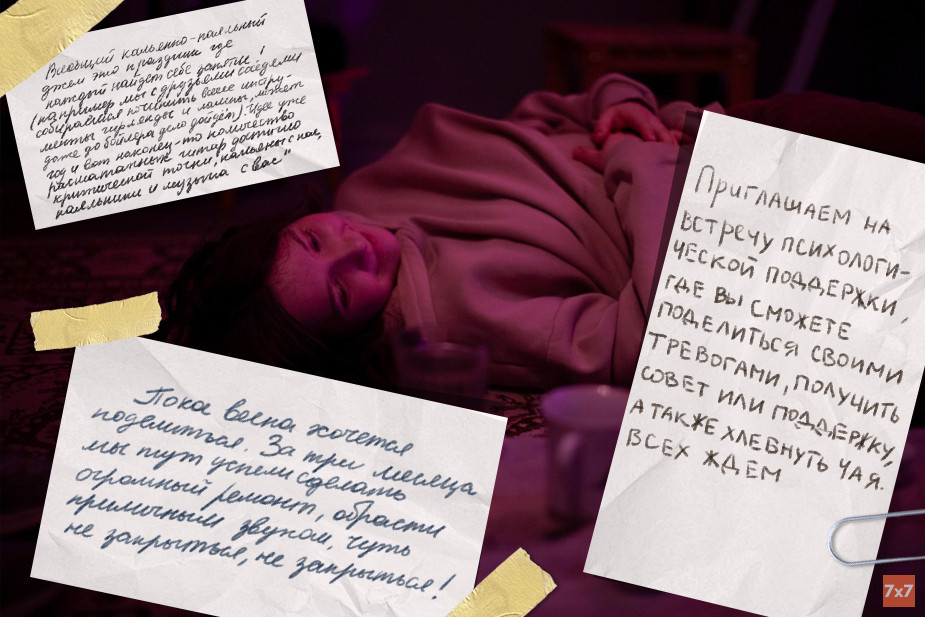 Всеобщий кальянно-паяльный
джем это праздник где
каждый найдет себе занятие!
(например мы с друзьями соседями
собираемся починить всякие инстру-
менты гирлянды и лампы, может
даже до бойлера дело дойдёт). Идее уже
год и вот наконец-то количество
расшатанных гитар достигло
критической точки, "кальяны с нас,
паяльники и музыка с вас"
Приглашаем на
встречу психологи-
ческой поддержки,
где вы сможете
поделиться своими
тревогами, получить
совет или поддержку,
а также хлебнуть чая.
Всех ждем
Пока весна хочется
поделиться. За три месяца
мы тут успели сделать
огромный ремонт, обрасти
приличным звуком, чуть
не закрыться, не закрыться!
7x7